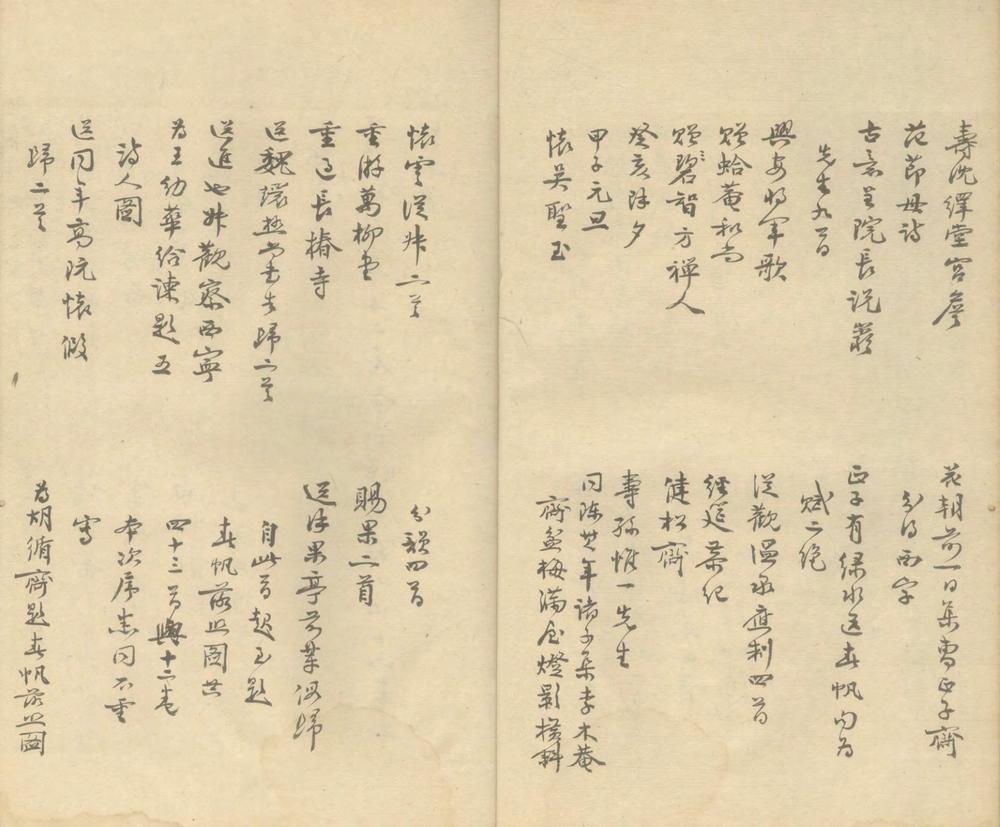 壽沈繹堂宮詹
范節母詩
古意呈院長說巖
先生九首
興安將軍歌
贈蛤菴和尚
贈碧智方禪人
癸亥除夕
甲子元旦
懷吳聖玉
花朝前一日集曹正子齋
分得西字
正子有綠水送春帆句為
賦二絕
從觀溫泉應制四首
經筵恭紀
健松齋
壽孫惟一先生
同陳其年諸子集李木菴
齋盆梅滿屋燈影橫斜
懷雩從姊二首
重游萬柳堂
重過長椿寺
送魏環極尚書告歸二首
送進也姊觀察西寧
為王幼華給諫題五
詩人圖
送同年高阮懷假
歸二首
分韻四首
賜果二首
送徐果亭前輩假歸
自此首起至題
春帆落照圖共
四十三首與十二卷
本次序悉同不重
寫
為胡循齋題春帆落照圖